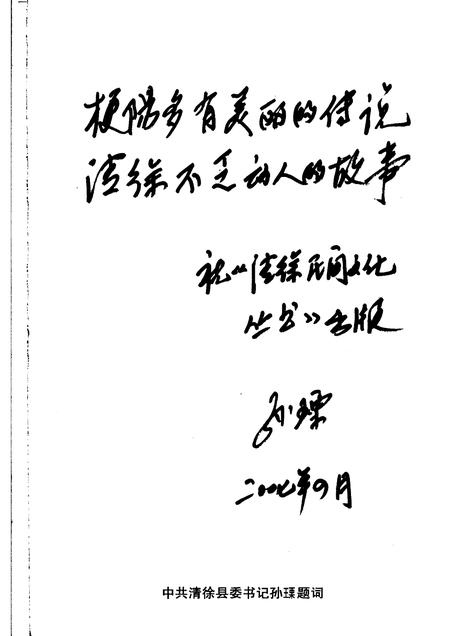 梗阳多有美丽的传说
清徐不乏动人的故事
祝《清徐民间文化
丛书》出版
孙瑮
二〇〇七年四月
中共清徐县委书记孙瑮题词